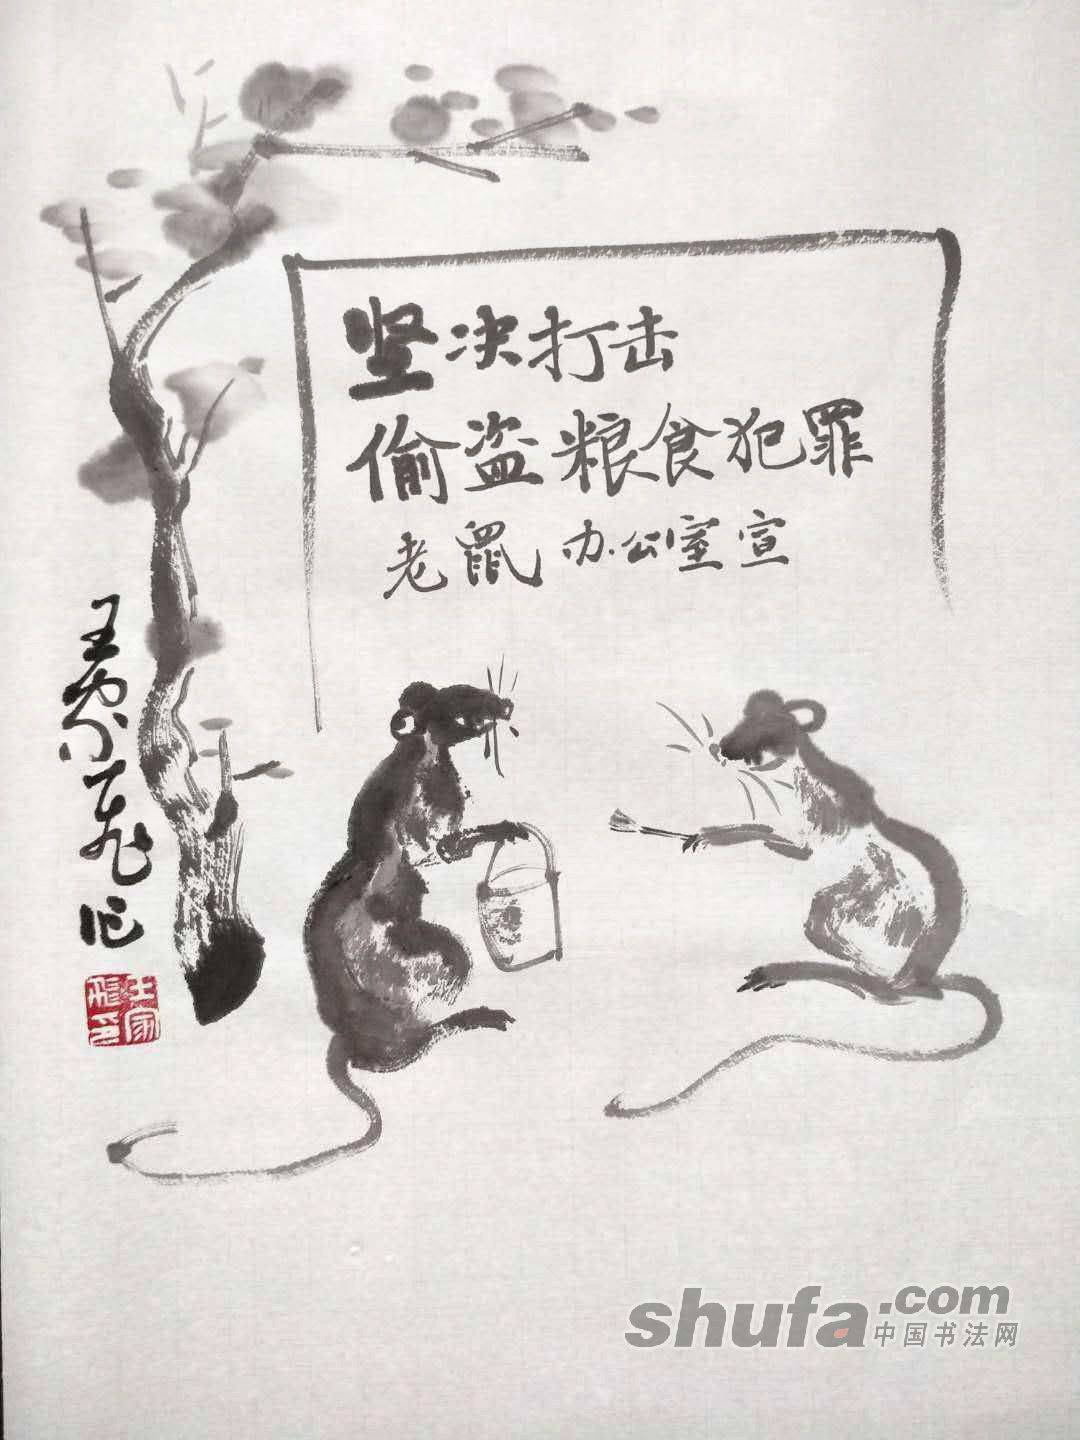 坚决打击
偷盗粮食犯罪
老鼠办公室宣
王家飞作
王家飛印
shufa.com
中国书法网